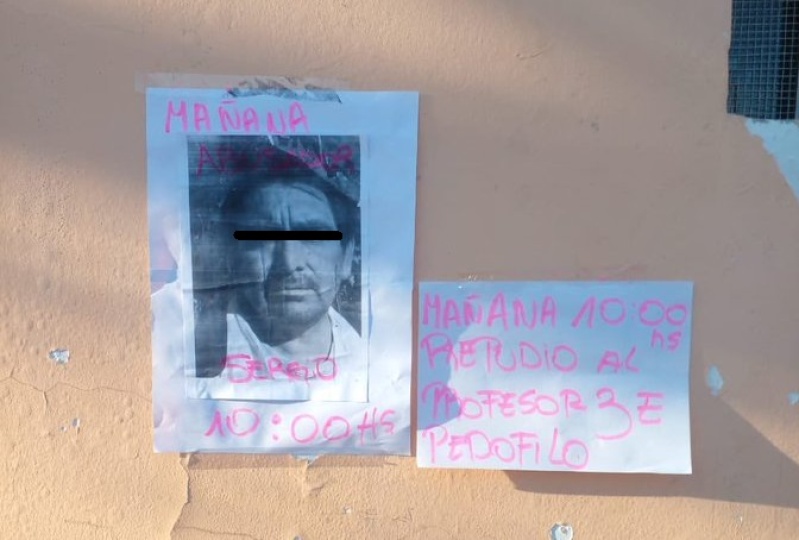 MAÑANA
SERGIO
10:00 HS
MAÑANA 10:00
hs
REPUDIO AL
PROFESOR 3 E
PEDOFILO